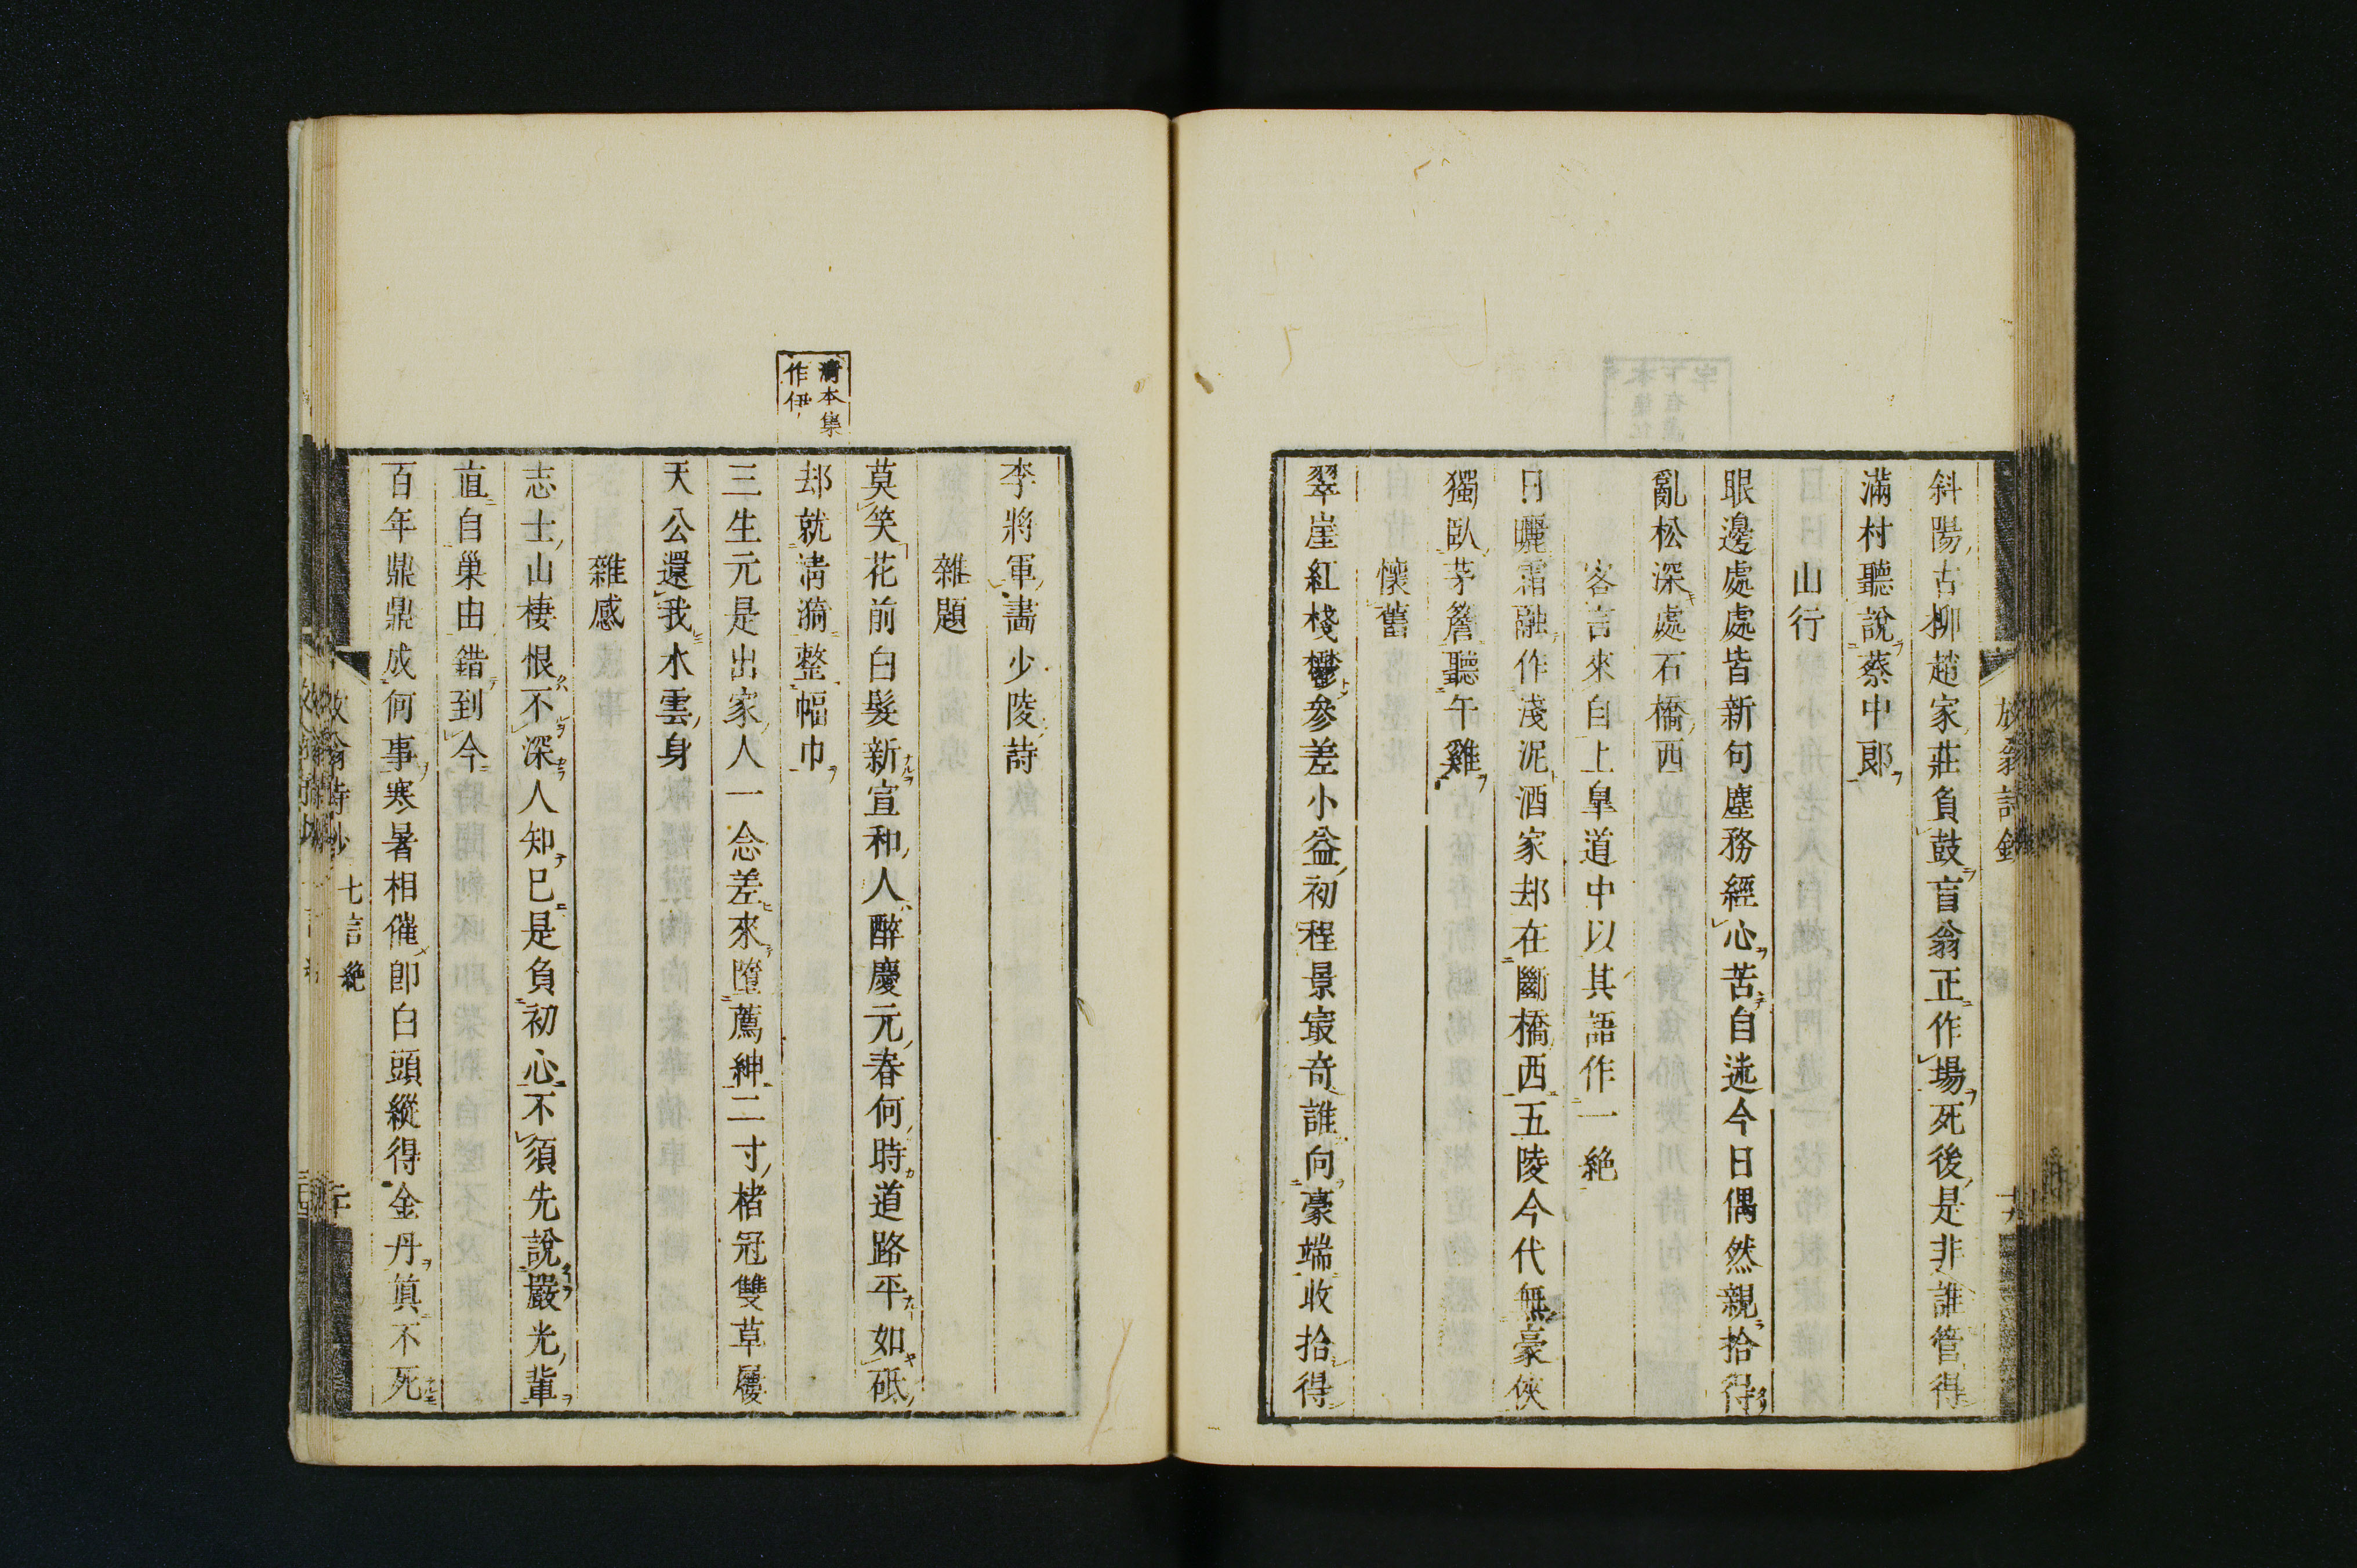 放翁詩鈔
十九
斜陽古柳趙家莊負鼓盲翁正作場死後是非誰管得
滿村聽說蔡中郎
山行
眼邊處處皆新句塵務經心苦自迷今日偶然親拾得
亂松深處石橋西
客言來自上皐道中以其語作一絶
日曬霜融作淺泥酒家却在斷橋西五陵今代無豪俠
獨臥茅簷聽午雞
懷舊
翠崖紅棧欝參差小益初程景最奇誰向豪端收拾得
李將軍畵少陵詩
雜題
莫笑花前白髮新宣和人醉慶元春何時道路平如砥
清本集
作伊
却就淸漪整幅巾
三生元是出家人一念差來墮薦紳二寸楮冠雙草屨
天公還我水雲身
雜感
志士山棲恨不深人知已是負初心不須先說嚴光輩
直自巢由錯到今
百年鼎鼎成何事寒暑相催卽白頭縱得金丹眞不死
放翁詩鈔 七言絶
二十